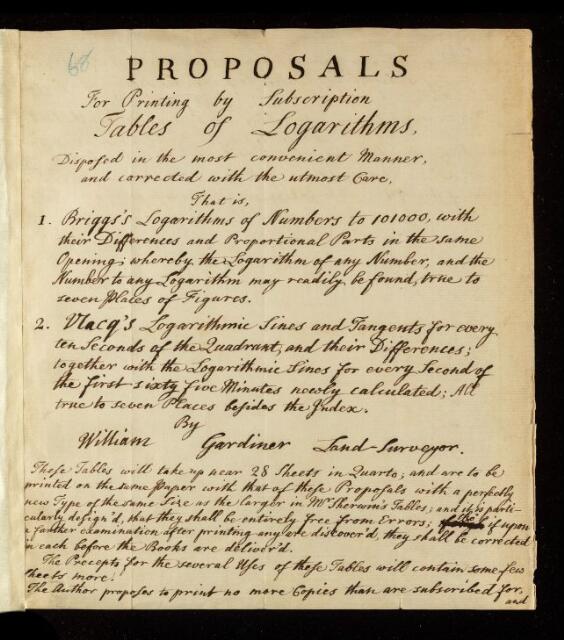 68
PROPOSALS
For Printing by Subscription
Tables of Logarithms,
Disposed in the most convenient Manner,
and corrected with the utmost Care,
That is,
1. Briggs's Logarithms of Numbers to 101000, with
their Differences and Proportional Parts in the same
Opening; whereby the Logarithm of any Number, and the
Number to any Logarithm may readily be found, true to
seven Places of Figures.
2. Vlacq's Logarithmic Sines and Tangents for every
ten Seconds of the Quadrant, and their Differences;
together with the Logarithmic Sines for every Second of
the first sixty five Minutes newly calculated; All
true to seven Places besides the Index.
By
William Gardiner Land-Surveyor.
These Tables will take up near 28 Sheets in Quarto; and are to be
printed on the same Paper with that of these Proposals with a perfectly
new Type of the same Size as the larger in Mr Sherwin's Tables; and it is parti-
cularly design'd, that they shall be entirely free from Errors; if upon
a farther examination after printing any are discover'd, they shall be corrected
in each before the Books are deliver'd.
The Precepts for the several Uses of these Tables will contain some few
Sheets more.
The Author proposes to print no more Copies than are subscribed for,
and